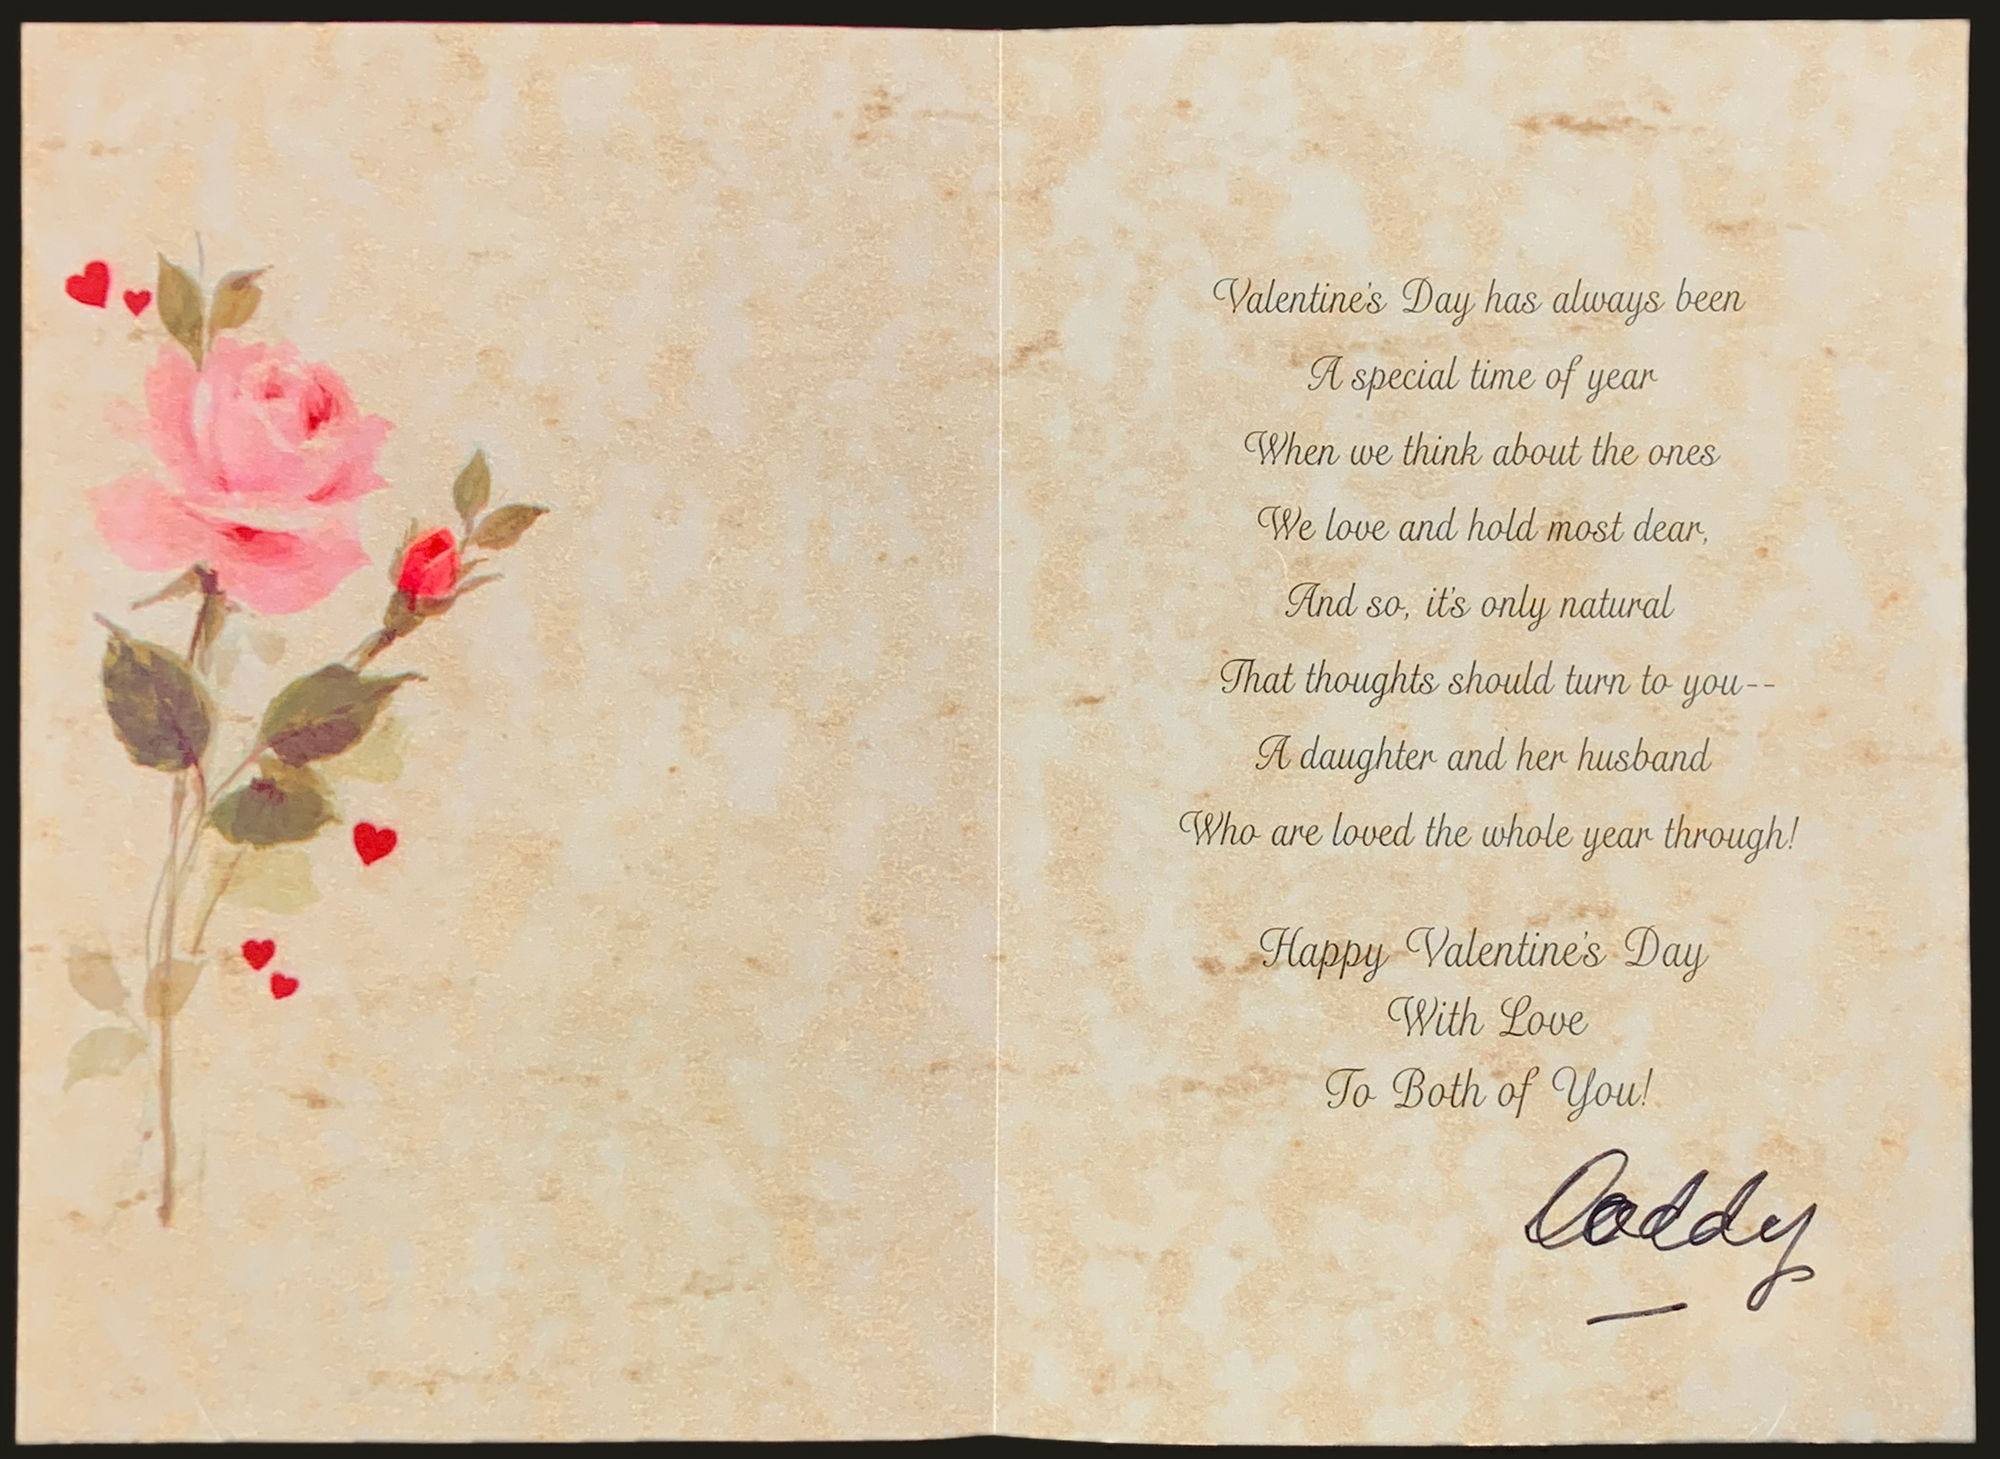 Valentine's Day has always been
A special time of year
When we think about the ones
We love and hold most dear,
And so, it's only natural
That thoughts should turn to you--
A daughter and her husband
Who are loved the whole year through!
Happy Valentine's Day
With Love
To Both of You!
Daddy